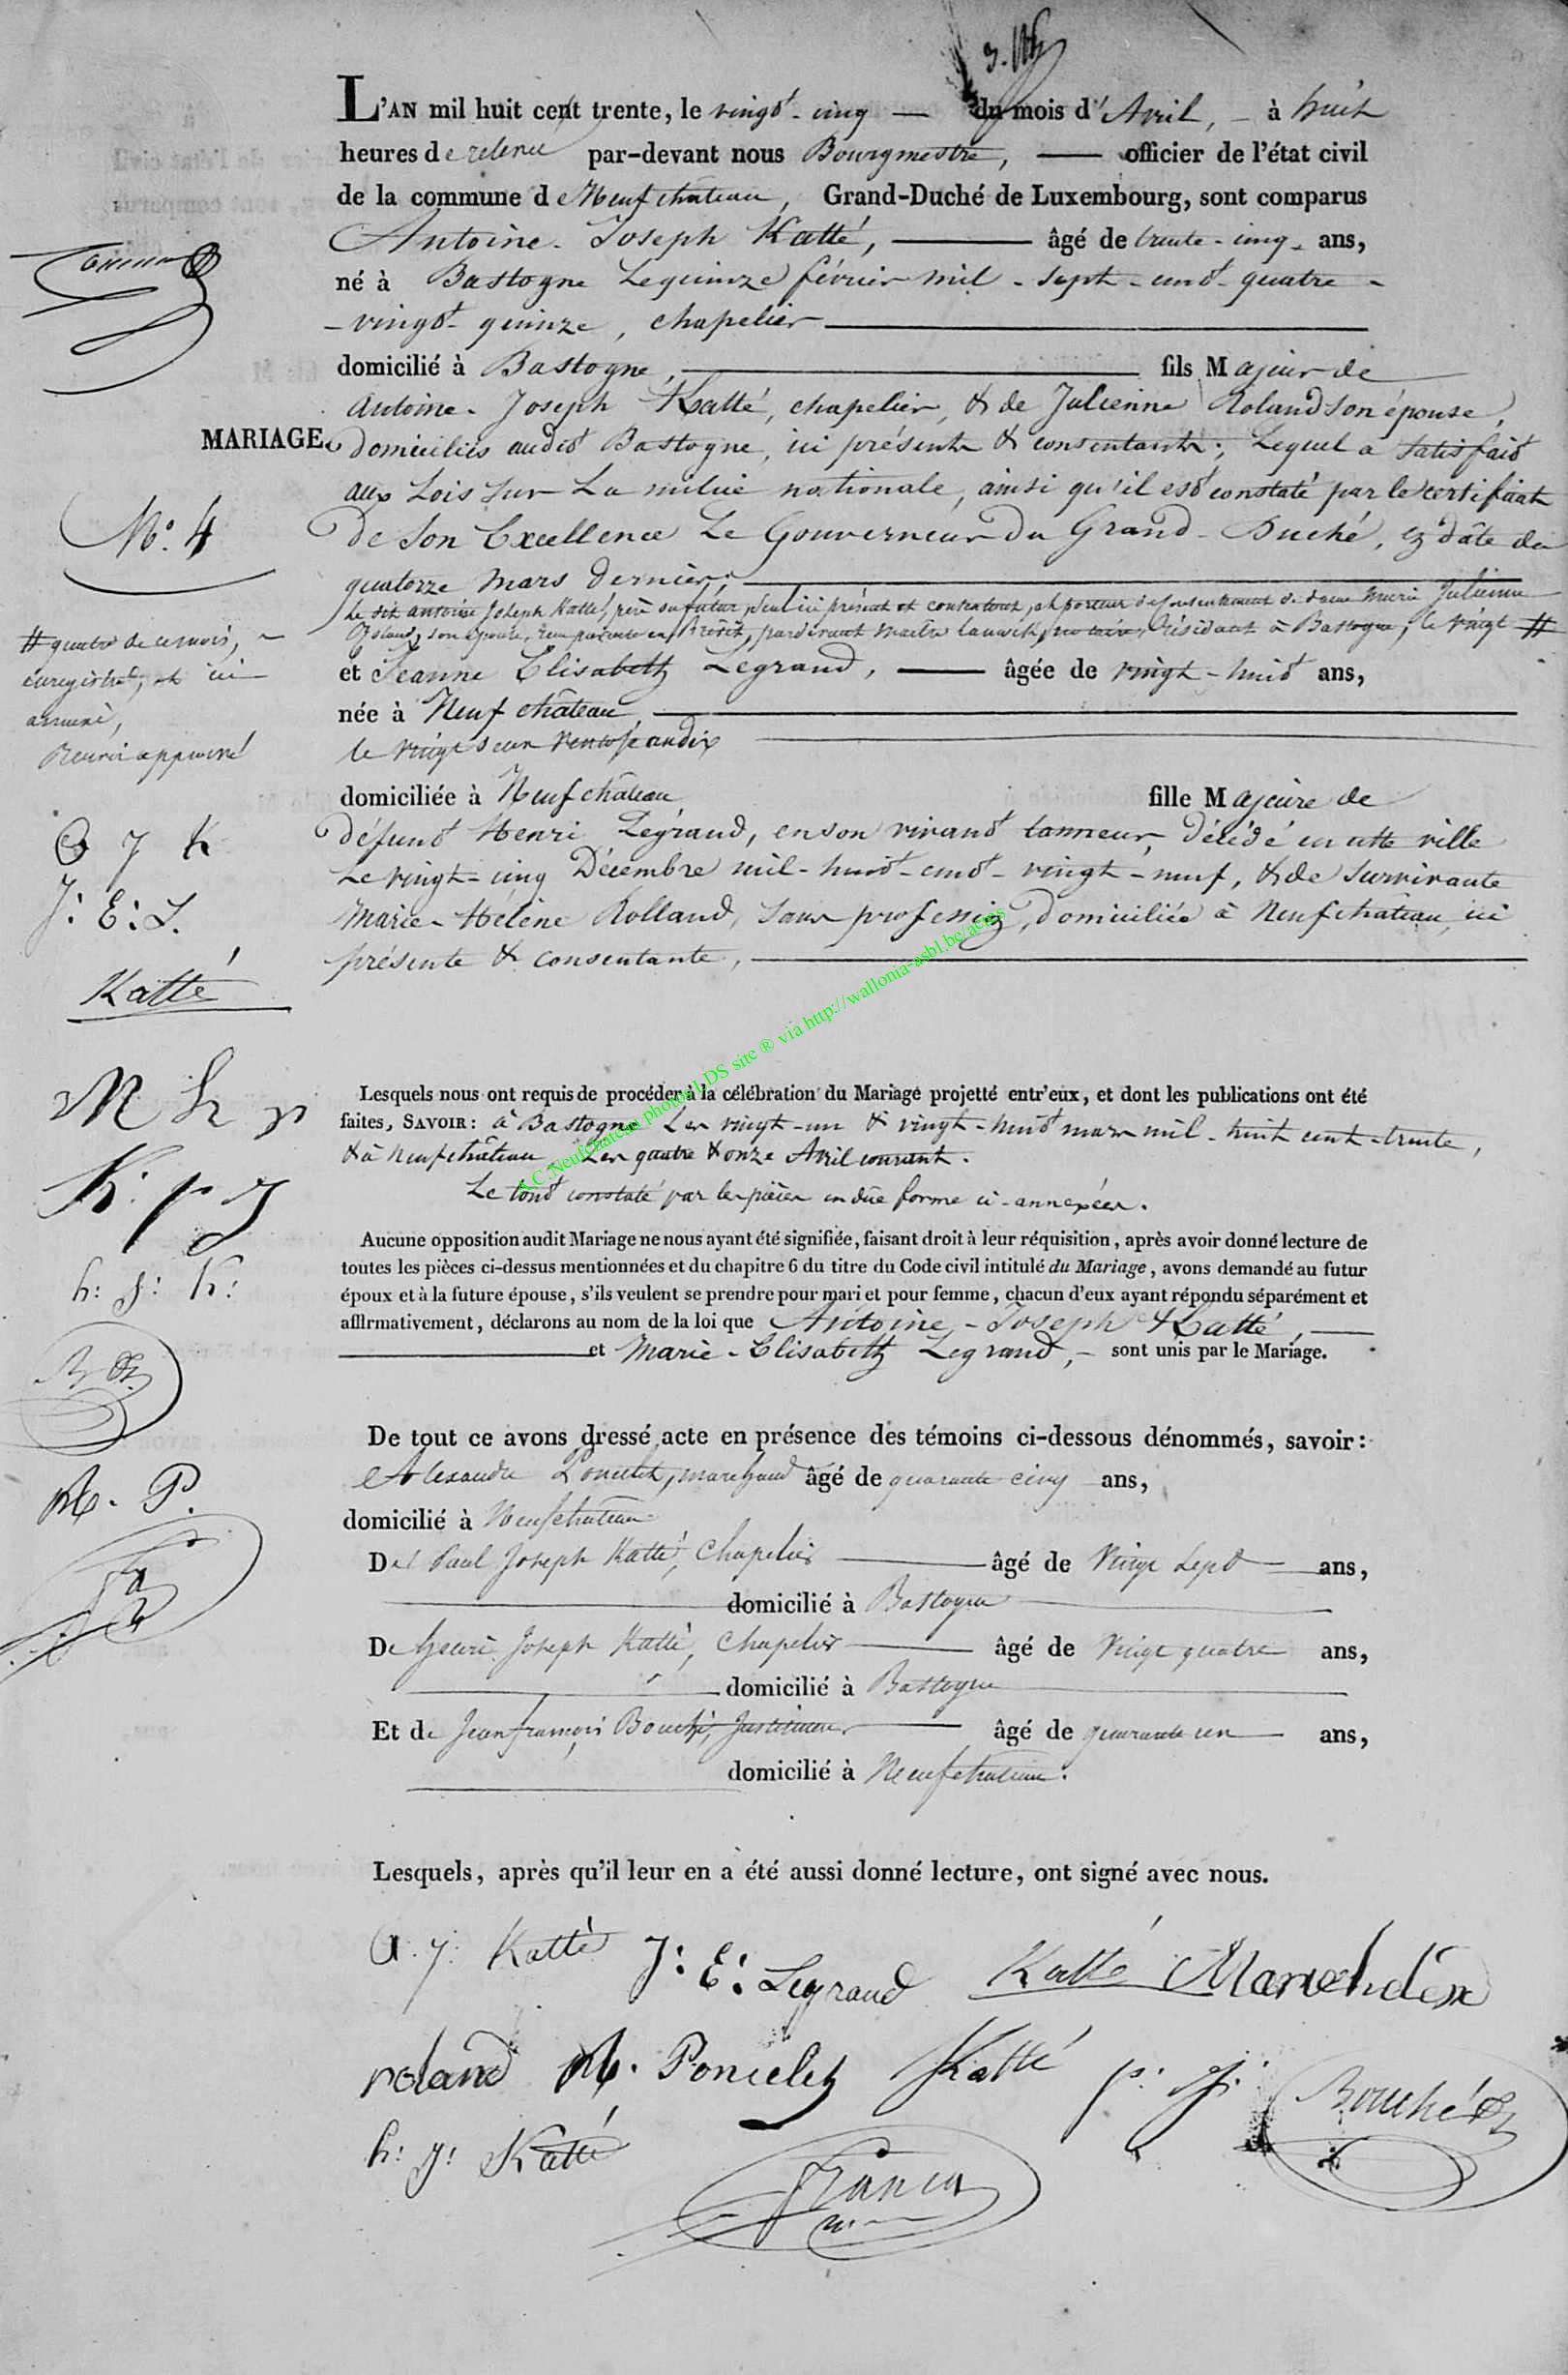 L'AN mil huit cent trente, le vingt-cinq — du mois d'Avril, - à huit
heures de relevée par-devant nous Bourgmestre, — officier de l'état civil
de la commune de Neufchâteau, Grand-Duché de Luxembourg, sont comparus
Antoine-Joseph Katté, — âgé de trente-cinq ans,
né à Bastogne le quinze février mil-sept-cent-quatre-
-vingt-quinze, chapelier —
domicilié à Bastogne, — fils Majeur de
Antoine-Joseph Katté, chapelier, & de Julienne Roland son épouse,
MARIAGE
domiciliés audit Bastogne, ici présents & consentants; Lequel a satisfait
aux Lois sur La milice nationale, ainsi qu'il est constaté par le certificat
N.º 4
de Son Excellence Le Gouverneur du Grand-Duché, en date du
quatorze mars dernier; —
Le dit antoine Joseph Katté, père du futur, seul ici présent et consentant, et porteur du consentement de dame Marie Julienne
Roland, son épouse, par devant Maître notaire, Résidant à Bastogne, le vingt #
# quatre de ce mois, ~
enregistré, et ici
annexé,
Renvoi approuvé
et Jeanne Elisabeth Legrand, — âgée de vingt-huit ans,
née à Neufchâteau, —
le vingt deux Ventose an dix
domiciliée à Neufchâteau, fille Majeure de
défunt Henri Legrand, en son vivant tanneur, décédé en cette ville
Le vingt-cinq Décembre mil-huit-cent-vingt-neuf, & de survivante
Marie-Hélène Rolland, sans profession, domiciliée à Neufchâteau, ici
présente & consentante, —
J: E: L.
Katté
Lesquels nous ont requis de procéder à la célébration du Mariage projetté entr'eux, et dont les publications ont été
faites, SAVOIR: à Bastogne Les vingt-un & vingt-huit mars mil-huit cent-trente,
& à Neufchâteau Les quatre & onze Avril courant.
Le tout constaté par les pièces en due forme ci-annexées.
A.C.Neufchateau photos LDS site ® via http://wallonia-asbl.be/actes
K: p J
h: j: K:
Aucune opposition audit Mariage ne nous ayant été signifiée, faisant droit à leur réquisition, après avoir donné lecture de
toutes les pièces ci-dessus mentionnées et du chapitre 6 du titre du Code civil intitulé du Mariage, avons demandé au futur
époux et à la future épouse, s'ils veulent se prendre pour mari et pour femme, chacun d'eux ayant répondu séparément et
affirmativement, déclarons au nom de la loi que Antoine-Joseph Katté, —
— et Marie-Elisabeth Legrand, - sont unis par le Mariage.
De tout ce avons dressé acte en présence des témoins ci-dessous dénommés, savoir:
Alexandre Poncelet, marchand âgé de quarante cinq ans,
domicilié à Neufchateau
De Paul Joseph Katté, Chapelier — âgé de Vingt Sept — ans,
— domicilié à Bastogne —
De henri Joseph Katté, Chapelier — âgé de Vingt quatre ans,
— domicilié à Bastogne —
Et de Jean françois Bouché, Instituteur — âgé de quarante un — ans,
— domicilié à Neufchateau.
Lesquels, après qu'il leur en a été aussi donné lecture, ont signé avec nous.
A. J. Katté J: E: Legrand Katté M
roland A. Poncelet Katté p: j: Bouché
h: j: Katté